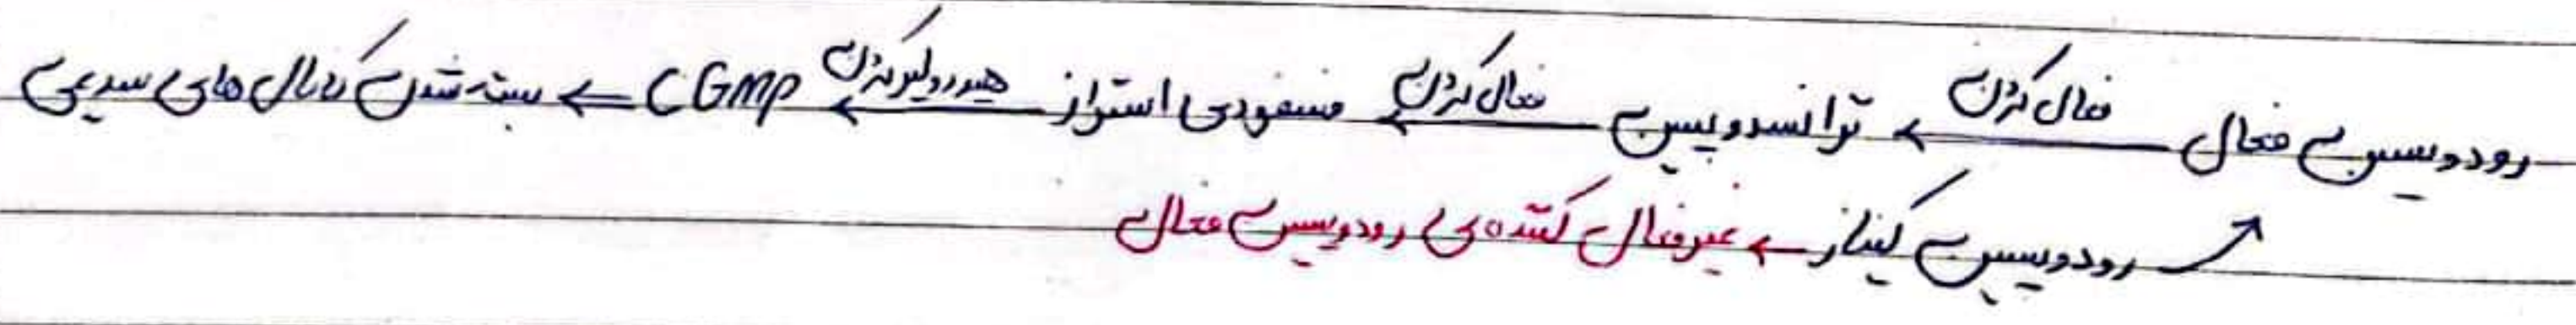 رودوپسین فعال ← فعال کردن ← ترانسدوسین ← فعال کردن ← فسفودی استراز ← هیدرولیز کردن ← CGMP ← بسته شدن کانال های سدیمی
رودوپسین کیناز ← غیرفعال کننده ی رودوپسین فعال